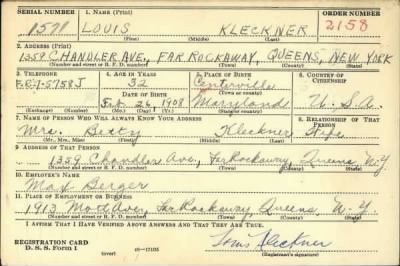 SERIAL NUMBER 1. NAME (Print) ORDER NUMBER
1578 LOUIS KLECKNER 2158
(First) (Middle) (Last)
2. ADDRESS (Print)
1359 CHANDLER AVE., FAR ROCKAWAY, QUEENS, NEW YORK
(Number and street or R. F. D. number) (Town) (County) (State)
3. TELEPHONE 4. AGE IN YEARS 5. PLACE OF BIRTH 6. COUNTRY OF CITIZENSHIP
32 Centerville
DATE OF BIRTH (Town or county)
5758J Feb. 26, 1908 Maryland U.S.A.
(Exchange) (Number) (Mo.) (Day) (Yr.) (State or country)
7. NAME OF PERSON WHO WILL ALWAYS KNOW YOUR ADDRESS 8. RELATIONSHIP OF THAT PERSON
Mrs. Betty Kleckner Wife
(Mr., Mrs., Miss) (First) (Middle) (Last)
9. ADDRESS OF THAT PERSON
1359 Chandler Ave., Far Rockaway, Queens N.Y.
(Number and street or R. F. D. number) (Town) (County) (State)
10. EMPLOYER'S NAME
Max Berger
11. PLACE OF EMPLOYMENT OR BUSINESS
1913 Mott Ave., Far Rockaway, Queens, N.Y.
(Number and street or R. F. D. number) (Town) (County) (State)
I AFFIRM THAT I HAVE VERIFIED ABOVE ANSWERS AND THAT THEY ARE TRUE.
REGISTRATION CARD
D. S. S. Form 1 (over) 16—17105 Louis Kleckner
(Registrant's signature)